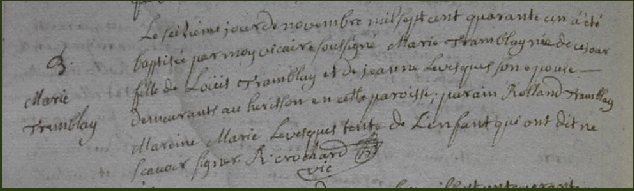 B.
Marie
Tramblay
Le seizieme jour de novembre mil sept cent quarante un a été
baptisée par moy vicaire soussigné Marie Tramblay née de ce jour
fille de Loüis Tramblay et de jeanne Levesques son epouse
demeurants au herisson en cette paroisse, parain Rolland Tramblay
Maroine Marie Levesques tente de L'enfant qui ont dit ne
scavoir signer R. crochard
vic